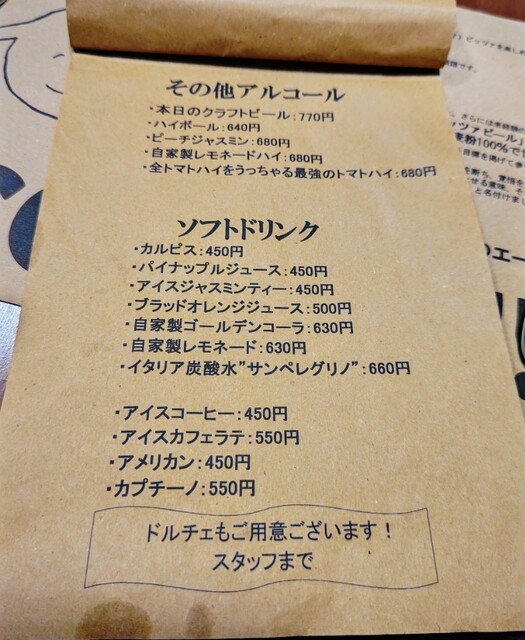 その他アルコール
・本日のクラフトビール：770円
・ハイボール：640円
・ピーチジャスミン：680円
・自家製レモネードハイ：680円
・全トマトハイをうっちゃる最強のトマトハイ：680円
ソフトドリンク
・カルピス：450円
・パイナップルジュース：450円
・アイスジャスミンティー：450円
・ブラッドオレンジジュース：500円
・自家製ゴールデンコーラ：630円
・自家製レモネード：630円
・イタリア炭酸水”サンペレグリノ”：660円
・アイスコーヒー：450円
・アイスカフェラテ：550円
・アメリカン：450円
・カプチーノ：550円
ドルチェもご用意ございます！
スタッフまで
ピッツァを楽しめ
さらには
ッツァビール」
麦粉100%で
のエー